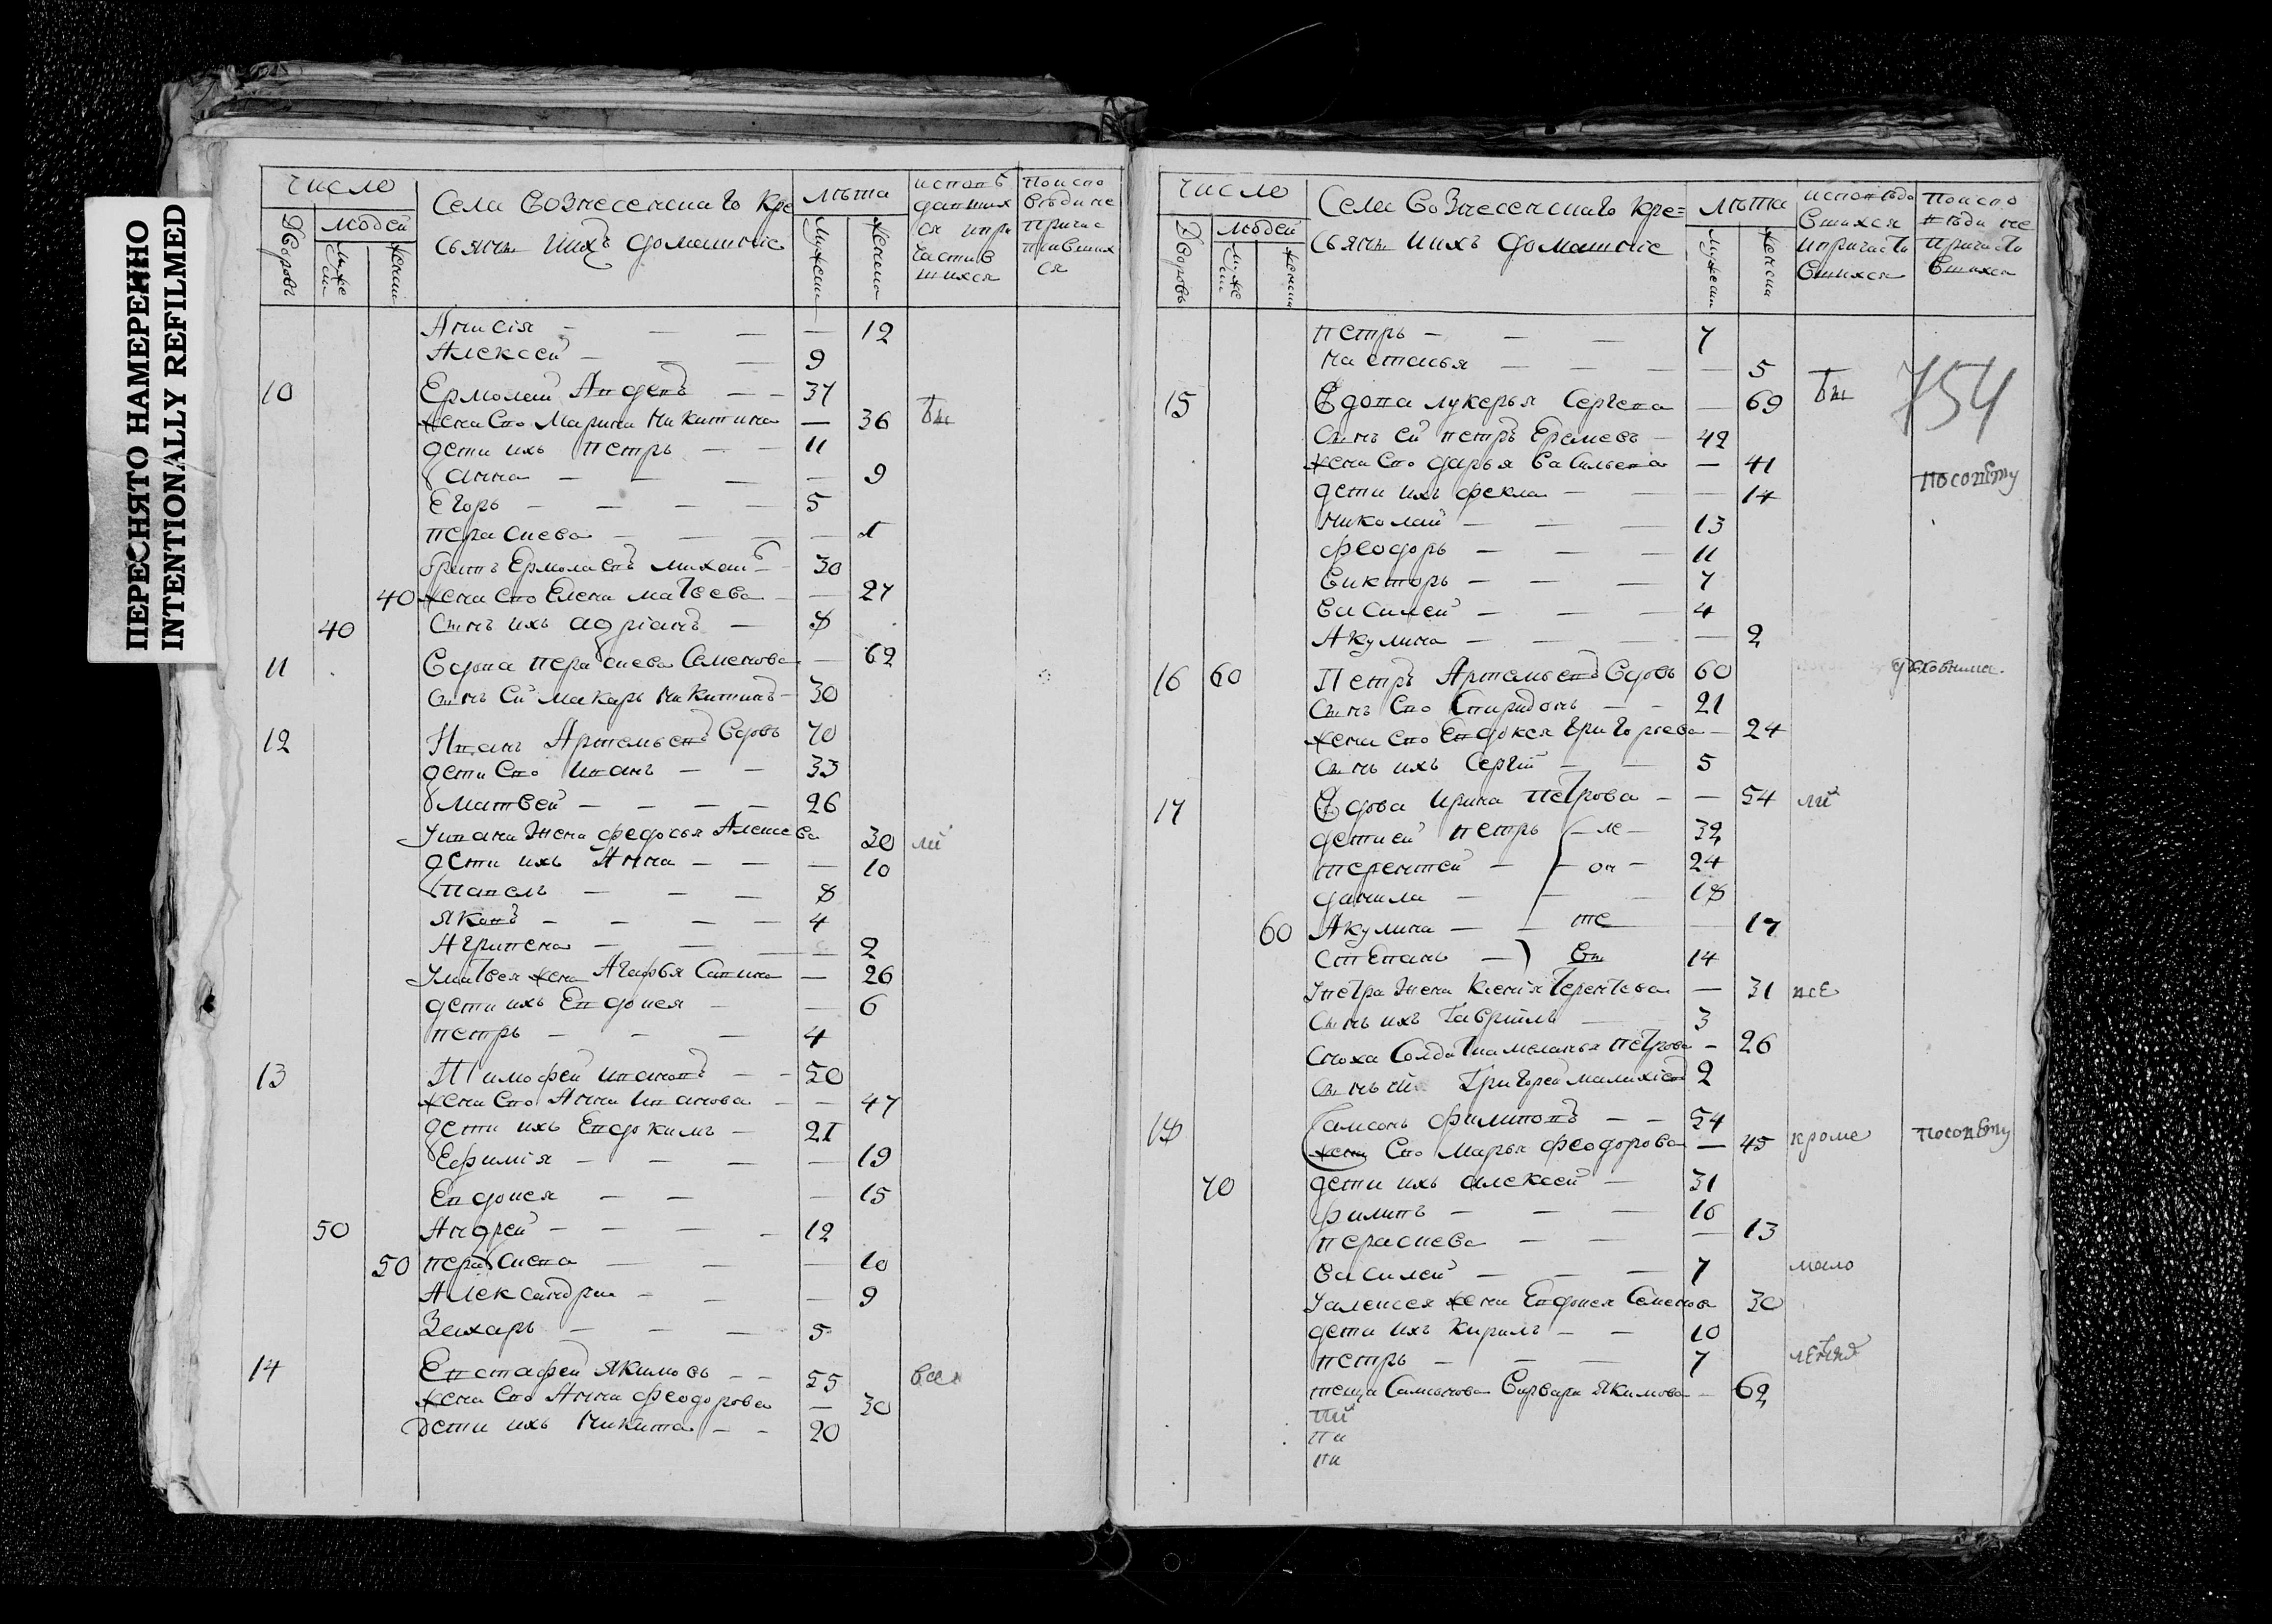 ПЕРЕСНЯТО НАМЕРЕННО
INTENTIONALLY REFILMED
число
Дворовъ
людей
муже ски
женски
Села Вознесенскаго кре
стьянъ ииxъ домашніе
лѣта
мужски
женски
исповѣ
давших
ся ипри
частив
шихся
поиспо
вѣди не
причас
тивших
ся
Анисія — — — — 12
Алексей — — — 9
10 Ермолай Авдеевъ — — 37
жена Его Марина Никитина — 36 вы
дети ихъ Петръ — — 11
Анна — — — — 9
Егоръ — — — — 5
Пераскева — — — — 1
братъ Ермолаевъ Михаилъ — 30
40 жена Его Елена Матвеева — — 27
40 Сынъ ихъ адріанъ — 8
11 Вдова Пераскева Семенова — 62
сынъ Ей Макаръ Никитинъ — 30
12 Иванъ Артемьевъ Седовъ 70
дети Его Иванъ — — 33
Матвей — — — — 26
Уивана жена федосья Алексева 30 ли
дети ихъ Анна — — — 10
Павелъ — — — 8
Яковъ — — — — 4
Агрипена — — — 2
Уматвея жена Агафья Савина — 26
дети ихъ Евдокея — — 6
петръ — — — 4
13 Тимофей ивановъ — — 50
жена Его Анна Иванова — — 47
дети ихъ Евдокимъ — 21
Ефимія — — — — 19
Евдокея — — — 15
50 Андрей — — — — 12
50 пераскева — — — 10
Александра — — — 9
Захаръ — — — 5
14 Евстафей Якимовъ — — 55
жена Его Анна феодорова — 30
Дети ихъ Никита — — 20
число
Дворовъ
людей
муже ски
женски
Села Вознесенскаго кре=
стьянъ ииxъ домашніе
лѣта
мужески
женски
исповѣдо
вшихся
ипричасти
вшихся
поиспо
вѣди не
причасти
вшихся
Петръ — — — 7
Настасья — — — — 5
754
15 Вдова лукерья Сергева — 69 вы
Сынъ ей петръ Еремеевъ — 42
жена Его дарья Васильева — 41
посовѣту
дети ихъ фекла — — — 14
Николай — — — 13
феодоръ — — — 11
Викторъ — — — 7
Василей — — — 4
Акулина — — — — 2
16 60 Петръ Артемьевъ Седовъ 60 духовника.
Сынъ Его Спиридонъ — — 21
жена Его Евдокея Григорьева — 24
Сынъ ихъ Сергій — — 5
17 Вдова Ирина Петрова — — 54 ли
детией Петръ — ле — 32
Терентей — — он — 24
данила — — 18
60 Акулина — — те — 17
Степанъ — вы 14
Упетра жена Ксенія Терентева — 31 все
Сынъ ихъ Гавріилъ — 3
Сноха Солдатка меланья Петрова — 26
сынъ ей Григорей 2
18 Самсонъ филиповъ — — 54
жена Его Марья феодорова — 45 кроме посовѣту
70 дети ихъ алексей — 31
филипъ — — — 16
пераскева — — — 13
Василей — — — 7 мало
Уалексея жена Евдокея Семенова 30
дети ихъ Кирилъ — — 10
петръ — — — 7
теща Самсонова Варвара Якимова — 62
пи
пи
пи